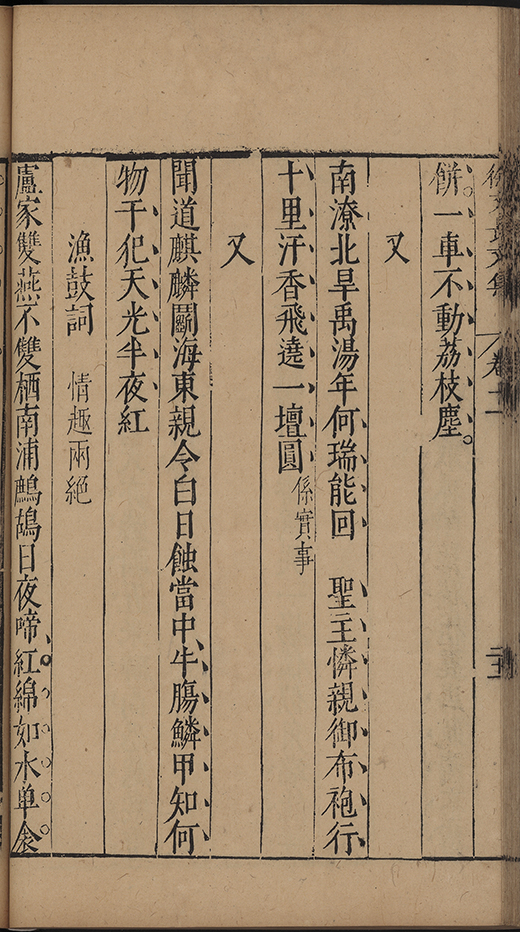 文集 卷十二
餅一車不動荔枝塵。
又
南潦北旱禹湯年何瑞能回 聖主憐親御布袍行
十里汗香飛遶一壇圓 係實事
又
聞道麒麟鬬海東親令白日蝕當中牛膓鱗甲知何
物干犯天光半夜紅
漁鼓詞 情趣兩絕
盧家雙燕不雙栖南浦鷓鴣日夜啼紅綿如水单衾